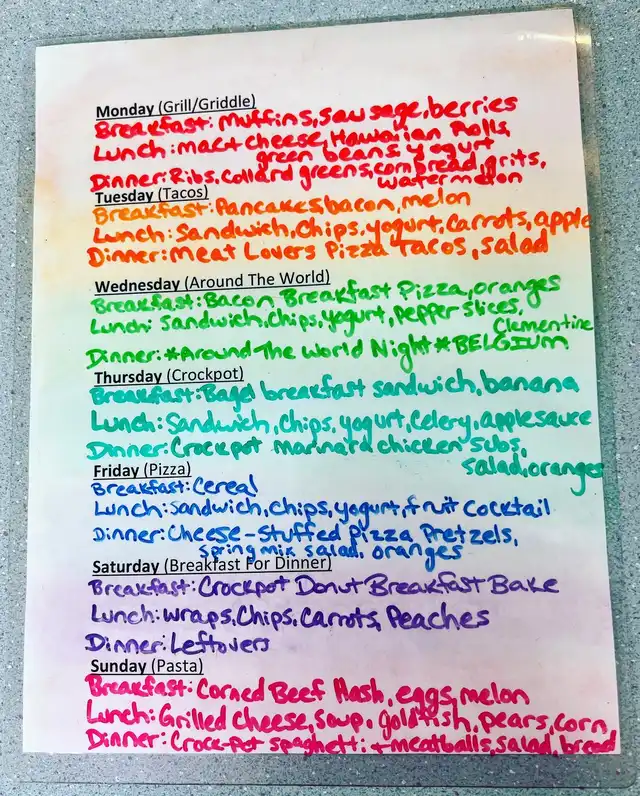 Monday (Grill/Griddle)
Breakfast: Muffins, sausage, berries
Lunch: mac + cheese, Hawaiian Rolls,
green beans, yogurt
Dinner: Ribs, collard greens, cornbread, grits,
watermelon
Tuesday (Tacos)
Breakfast: Pancakes, bacon, melon
Lunch: Sandwich, Chips, yogurt, Carrots, apple
Dinner: Meat Lovers Pizza Tacos, salad
Wednesday (Around The World)
Breakfast: Bacon Breakfast Pizza, oranges
Lunch: Sandwich, Chips, yogurt, pepper slices,
Clementine
Dinner: *Around The World Night* BELGIUM
Thursday (Crockpot)
Breakfast: Bagel breakfast sandwich, banana
Lunch: Sandwich, Chips, yogurt, Celery, applesauce
Dinner: Crockpot marinara chicken Subs,
Salad, oranges
Friday (Pizza)
Breakfast: Cereal
Lunch: Sandwich, Chips, yogurt, fruit cocktail
Dinner: Cheese-Stuffed Pizza Pretzels,
spring mix salad, oranges
Saturday (Breakfast For Dinner)
Breakfast: Crockpot Donut Breakfast Bake
Lunch: Wraps, Chips, Carrots, Peaches
Dinner: Leftovers
Sunday (Pasta)
Breakfast: Corned Beef Hash, eggs, melon
Lunch: Grilled Cheese, Soup, goldfish, pears, corn,
Dinner: Crock-pot spaghetti + meatballs, salad, bread